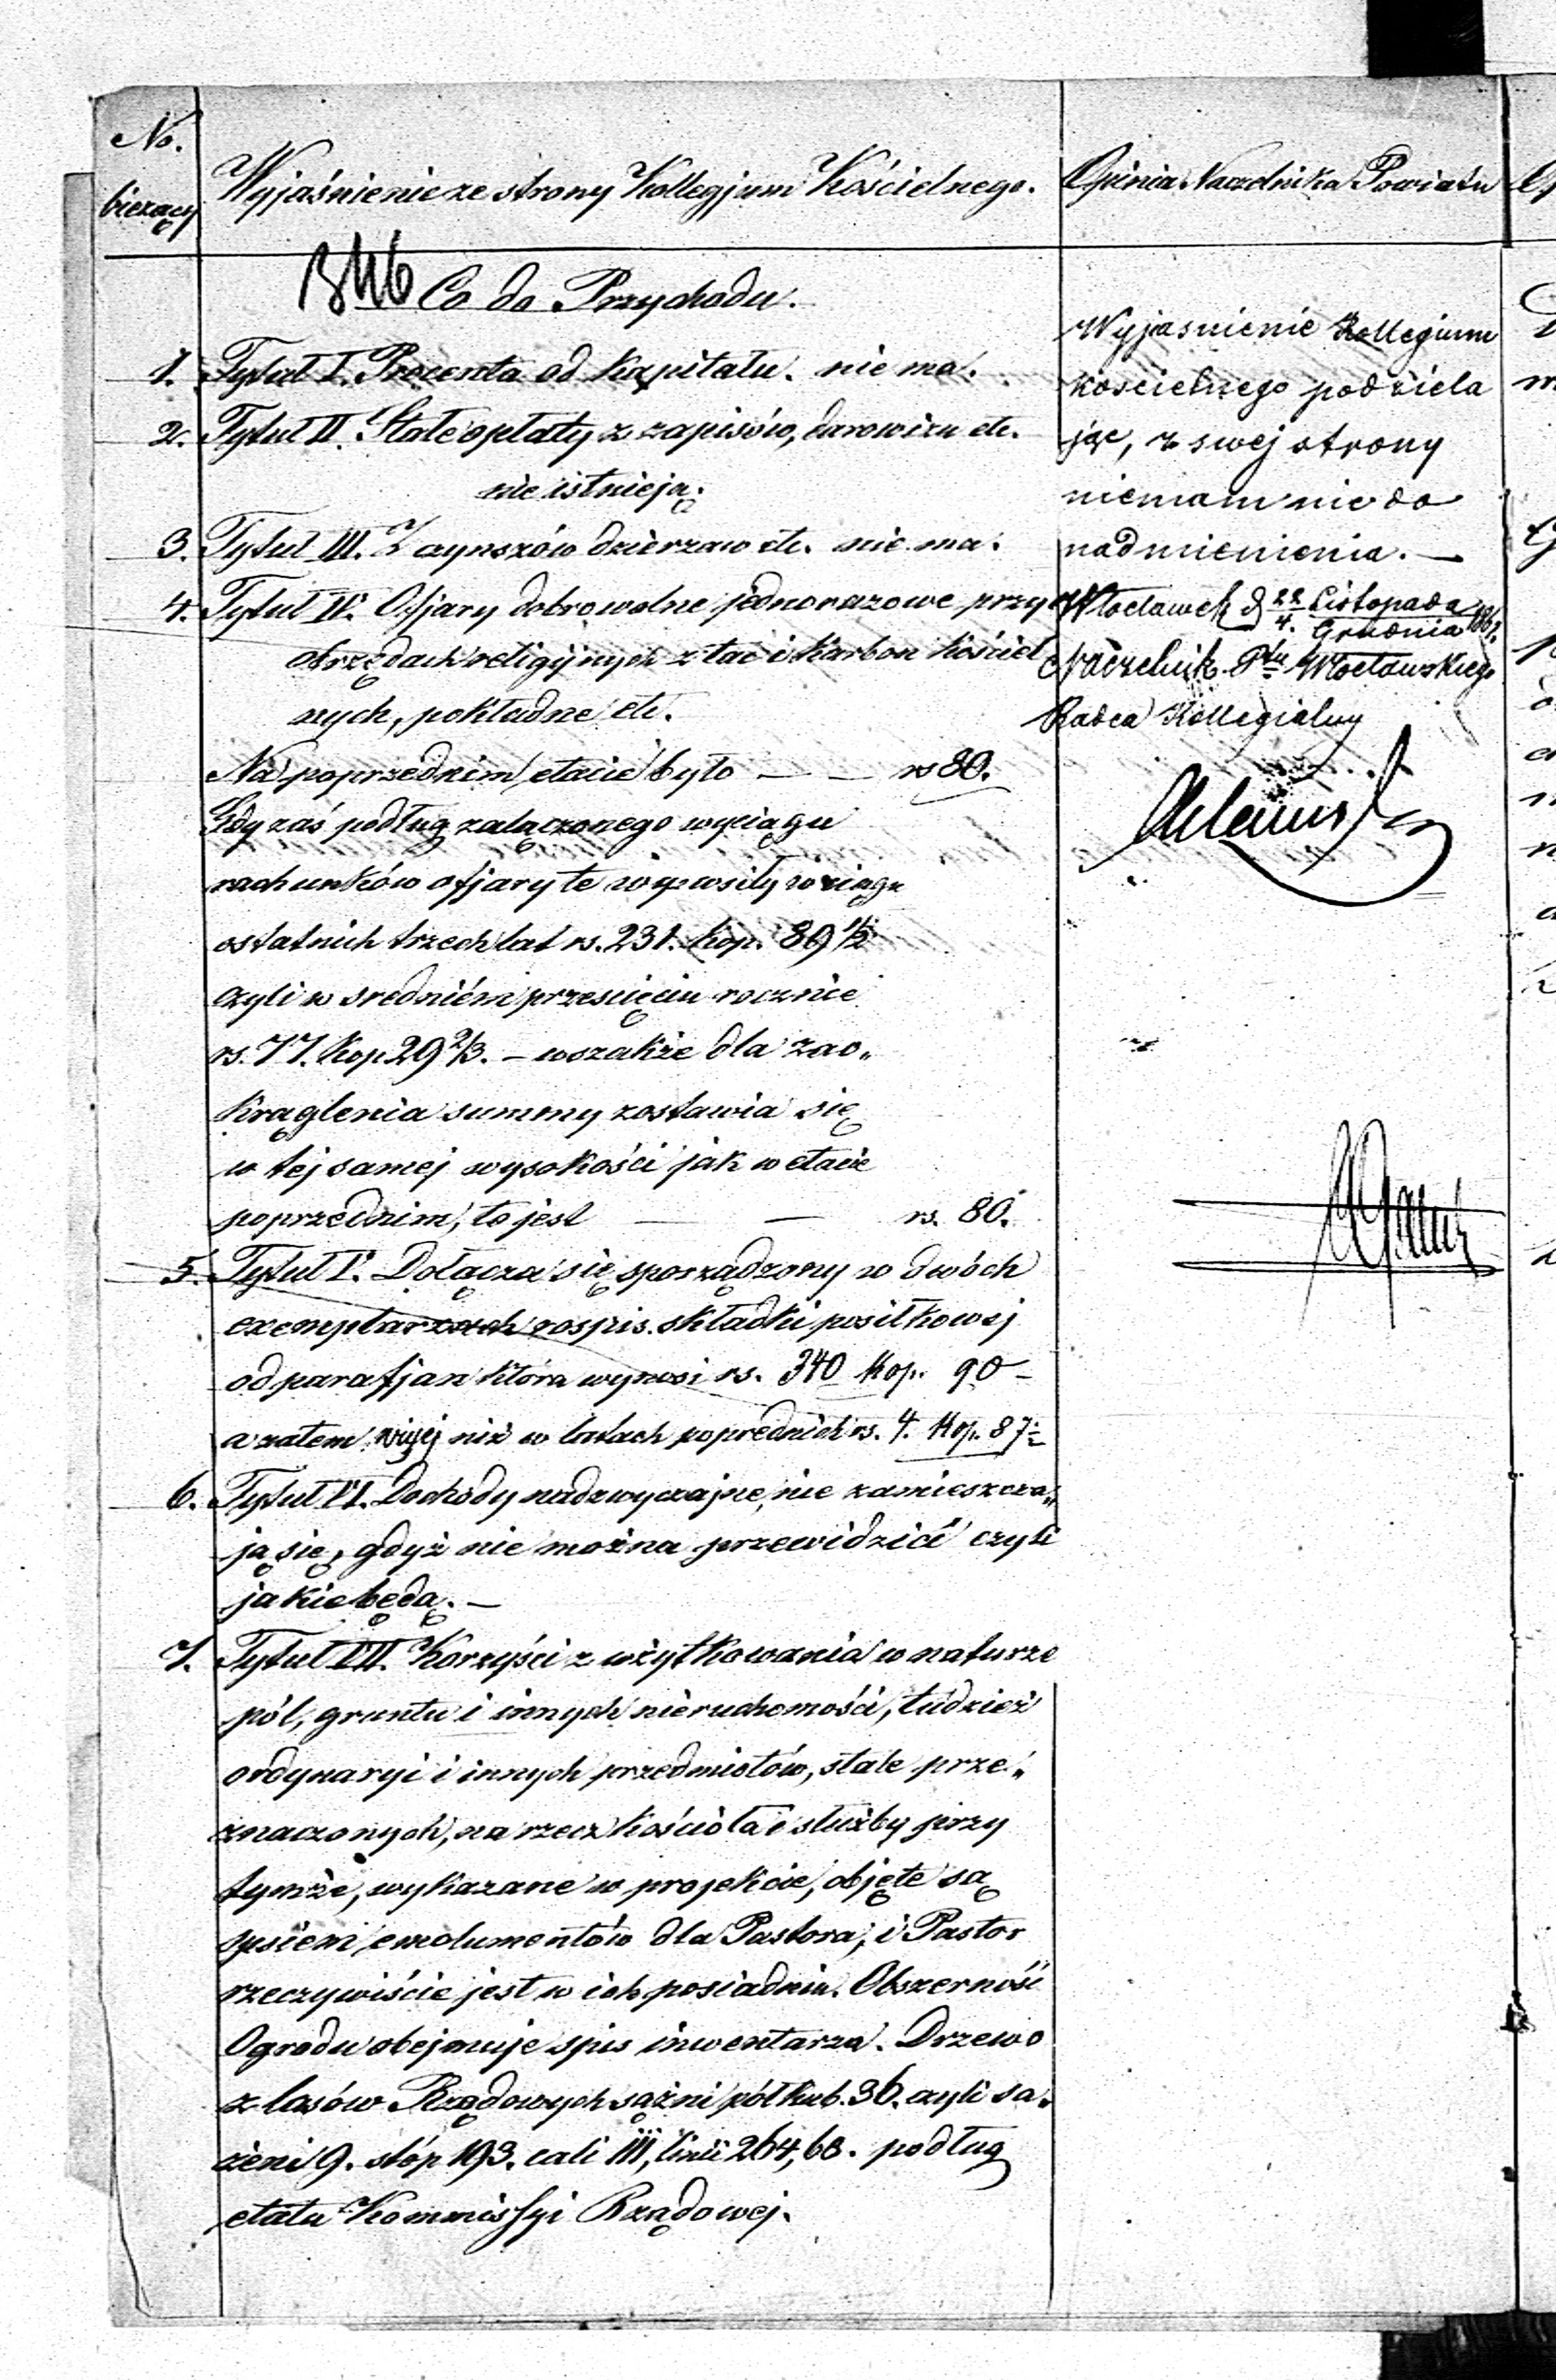 No.
bieżący
Wyjaśnienie ze strony Kollegjum Kościelnego.
Opinia Naczelnika Powiatu
Co do Przychodu.
1. Tytuł I. Procenta od Kapitału. nie ma.
2. Tytuł II. Stałe opłaty z zapisów, darowizn etc.
nie istnieją.
3. Tytuł III. Z czynszów dzierżaw etc. nie ma.
4. Tytuł IV. Ofjary dobrowolne jednorazowe przy
obrzędach religijnych z tac i Karbon Kościel
nych, pokładne etc.
Na poprzednim etacie było — — rs 80.
Gdy zaś podług załączonego wyciągu
rachunków ofjary te wynosiły w ciągu
ostatnich trzech lat rs. 231. kop. 89 1/2
czyli w sredniém przescięciu rocznie
rs. 77. Kop 29 2/3. – wszakże dla zao„
krąglenia summy zostawia się
w tej samej wysokości jak w etacie
poprzednim, to jest — — rs. 80.
5. Tytuł V. Dołącza się sporządzony w dwóch
exemplarzach rospis składki posiłkowej
od parafjan która wynosi rs. 340 Kop. 90 –
a zatem więcej niż w latach poprednich rs. 4. Kop. 87 1/2
6. Tytuł VI. Dochody nadzwyczajne, nie zamieszcza„
ją się, gdyż nie można przewidzieć czyli
jakie będą. —
7. Tytuł VII. Korzyści z użytkowania w naturze
pól, gruntu i innych nieruchomości, tudzież
ordynaryi i innych przedmiotów, stale prze„
znaczonych, na rzecz kościoła i służby przy
tymże, wykazane w projekcie, objęte są
spisem emolumentów dla Pastora, i Pastor
rzeczywiście jest w ich posiadniu. Obszerność
Ogrodu obejmuje spis inwentarza. Drzewo
z lasów Rządowych sążni pół kub. 36. czyli są„
żeni 9. stóp 193. cali III, linii 264,68. podług
etatu Kommissyi Rządowej.
Wyjasnienie Kollegium
koscielnego podziela
jąc, z swej strony
niemam nic do
nadmienienia. —
Włocławek d 22/4. Listopada/Grudnia
Naczelnik Ptu Włocławskiego
Radca Kollegialny